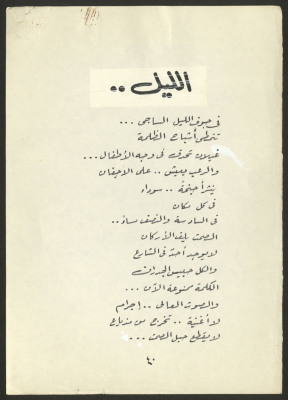 الليل ..
في جوف الليل الساجى ...
تتمطى أشباح الظلمة
غيلان تحدق في وجه الأطفال ...
والرعب يعيش .. على الأجفان
ينثر أجنحة .. سوداء
في كل مكان
في السادسة والنصف مساءً ..
الصمت يلف الأركان
لا يوجد أحد في الشارع
والكل حبيس الجدران
الكلمة ممنوعة الآن ...
والصوت العالى .. إجرام
لا أغنية .. تخرج من مذياع
لا يقطع حبل الصمت ...
٤٠